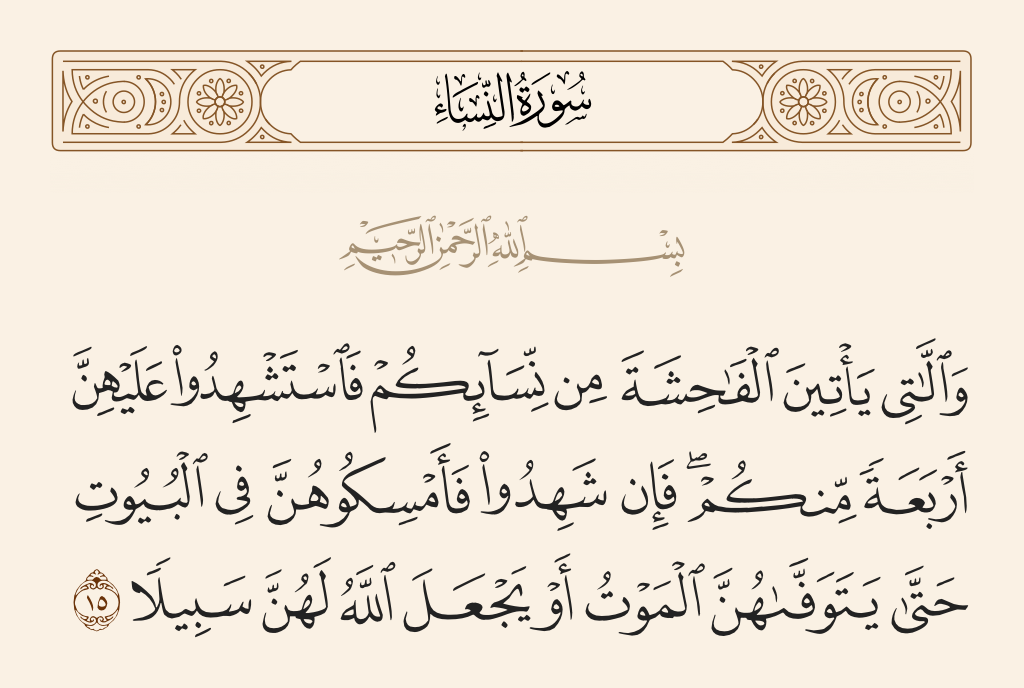 سُورَةُ النِّسَاءِ
بِسْمِ ٱللَّهِ ٱلرَّحْمَٰنِ ٱلرَّحِيمِ
وَٱلَّٰتِى يَأْتِينَ ٱلْفَٰحِشَةَ مِن نِّسَآئِكُمْ فَٱسْتَشْهِدُوا۟ عَلَيْهِنَّ
أَرْبَعَةً مِّنكُمْ ۖ فَإِن شَهِدُوا۟ فَأَمْسِكُوهُنَّ فِى ٱلْبُيُوتِ
حَتَّىٰ يَتَوَفَّىٰهُنَّ ٱلْمَوْتُ أَوْ يَجْعَلَ ٱللَّهُ لَهُنَّ سَبِيلًا ١٥